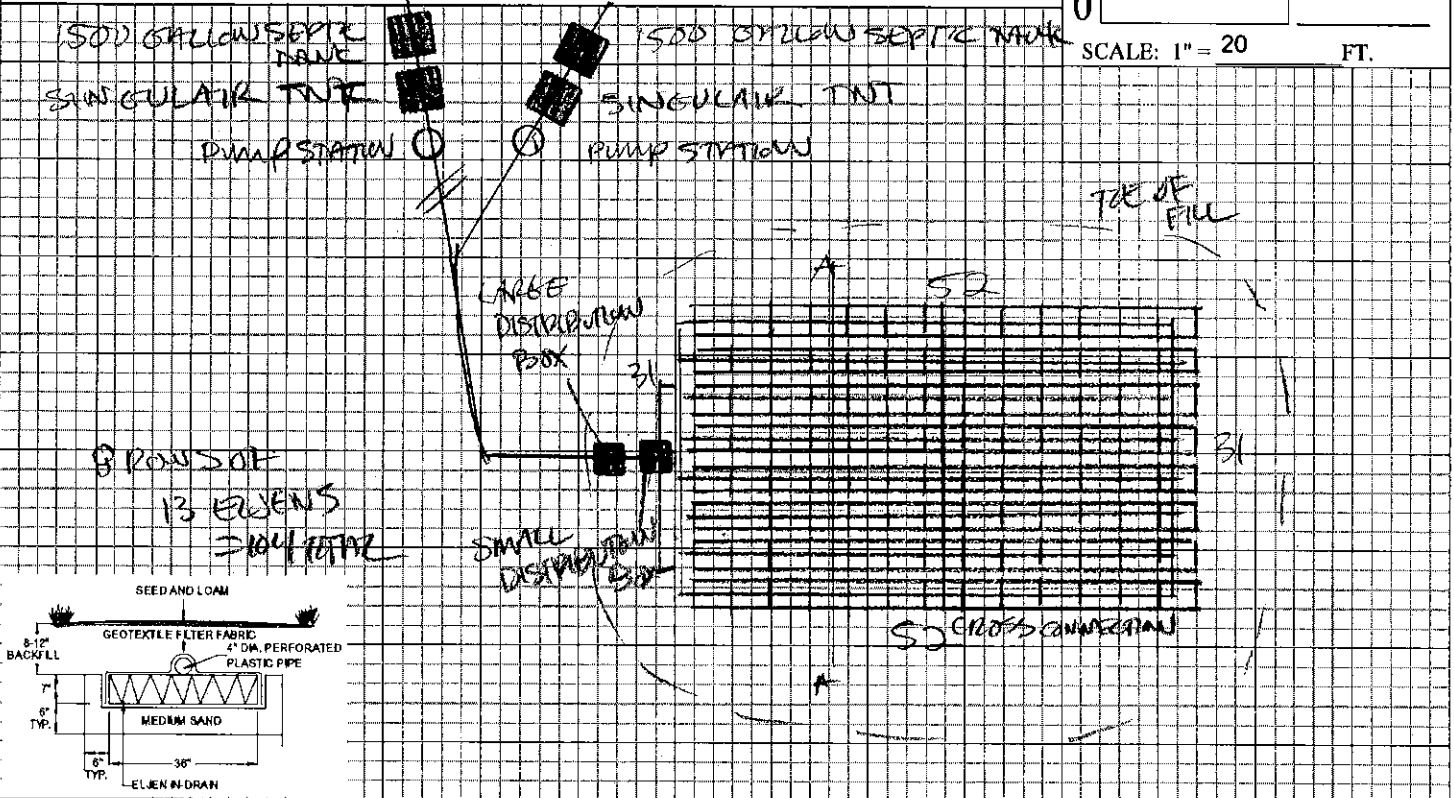 0
SCALE: 1" = 20 FT.
1500 GALLON SEPTIC
TANK
1500 GALLON SEPTIC TANK
SINGULAIR TNT
SINGULAIR TNT
PUMP STATION
PUMP STATION
TOE OF
FILL
LARGE
DISTRIBUTION
BOX
A
52
31
31
8 ROWS OF
13 ELJENS
=104 TOTAL
SMALL
DISTRIBUTION
BOX
52
CROSS CONNECTION
A
SEED AND LOAM
GEOTEXTILE FILTER FABRIC
8-12"
BACKFILL
4" DIA. PERFORATED
PLASTIC PIPE
7"
6"
TYP.
MEDIUM SAND
6"
TYP.
36"
ELJEN IN-DRAIN